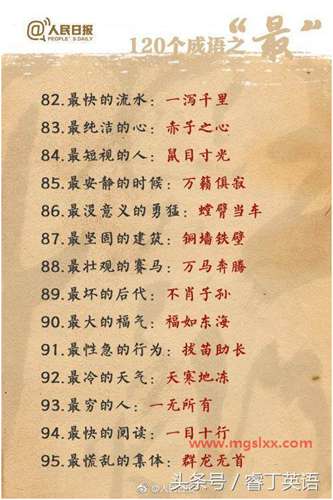 @人民日报
PEOPLE'S DAILY
120个成语之“最”
82.最快的流水：一泻千里
83.最纯洁的心：赤子之心
84.最短视的人：鼠目寸光
85.最安静的时候：万籁俱寂
86.最没意义的勇猛：螳臂当车
87.最坚固的建筑：铜墙铁壁
88.最壮观的赛马：万马奔腾
89.最坏的后代：不肖子孙
90.最大的福气：福如东海
91.最性急的行为：拔苗助长
92.最冷的天气：天寒地冻
93.最穷的人：一无所有
www.mgslxx.com
94.最快的阅读：一目十行
95.最慌乱的集体：群龙无首
头条号/睿丁英语